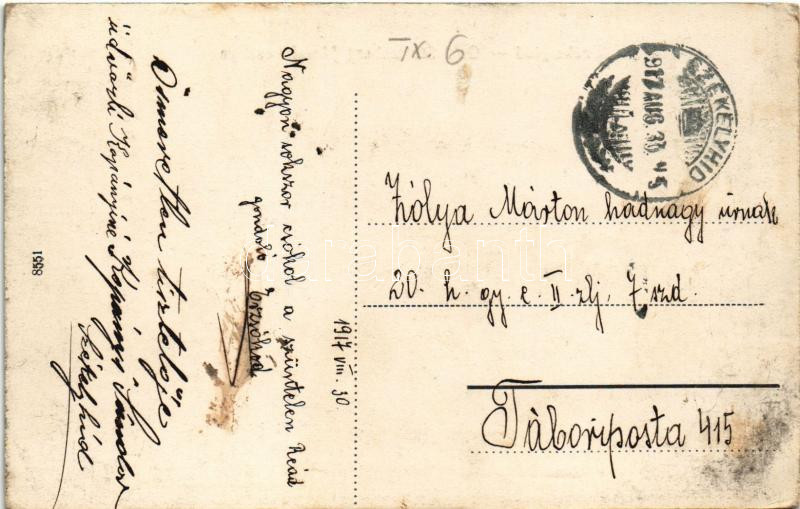 IX. 6
SZÉKELYHID
917 AUG. 30.
Zólya Márton hadnagy úrnak
20. h. gy. e. II. zlj. 7. szd.
Tábori posta 415
1917 VIII. 30.
Nagyon sokszor csókol a szüntelen Reád
gondoló
Ismeretlen tisztelője
üdvözli Kopányiné Kopányi Sándor
Székelyhid
8551
darabanth